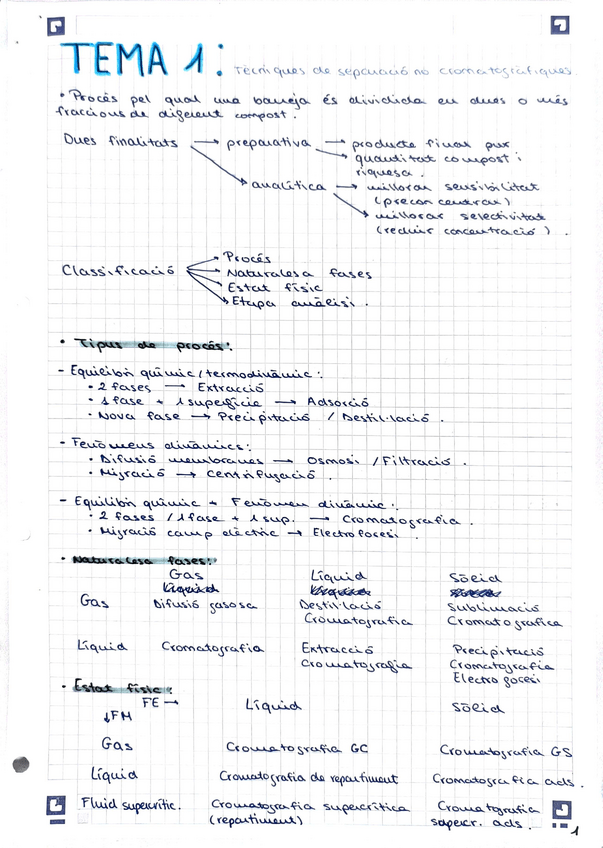 TEMA 1: Tècniques de separació no cromatogràfiques.
• Procés pel qual una barreja és dividida en dues o més
fraccions de diferent compost.
Dues finalitats → preparativa → producte final pur
→ quantitat compost i
riquesa.
→ analítica → millorar sensibilitat
(preconcentrar)
→ millorar selectivitat
(reduir concentració).
Classificació → Procés
→ Naturalesa fases
→ Estat físic
→ Etapa anàlisi.
• Tipus de procés:
- Equilibri químic/termodinàmic:
• 2 fases → Extracció
• 1 fase + 1 superfície → Adsorció
• Nova fase → Precipitació / Destil·lació.
- Fenòmens dinàmics:
• Difusió membranes → Osmosi / Filtració.
• Migració → Centrifugació.
- Equilibri químic + Fenòmen dinàmic:
• 2 fases / 1 fase + 1 sup. → Cromatografia.
• Migració camp elèctric → Electroforesi.
• Naturalesa fases:
Gas Líquid Sòlid
Gas Difusió gasosa Destil·lació Sublimació
Cromatografia Cromatografica
Líquid Cromatografia Extracció Precipitació
Cromatografia Cromatografia
Electroforesi
• Estat físic:
FE → Líquid Sòlid
↓FM
Gas Cromatografia GC Cromatografia GS
Líquid Cromatografia de repartiment Cromatografia ads.
Fluid supercrític. Cromatografia supercrítica Cromatografia
(repartiment) supercr. ads.
1